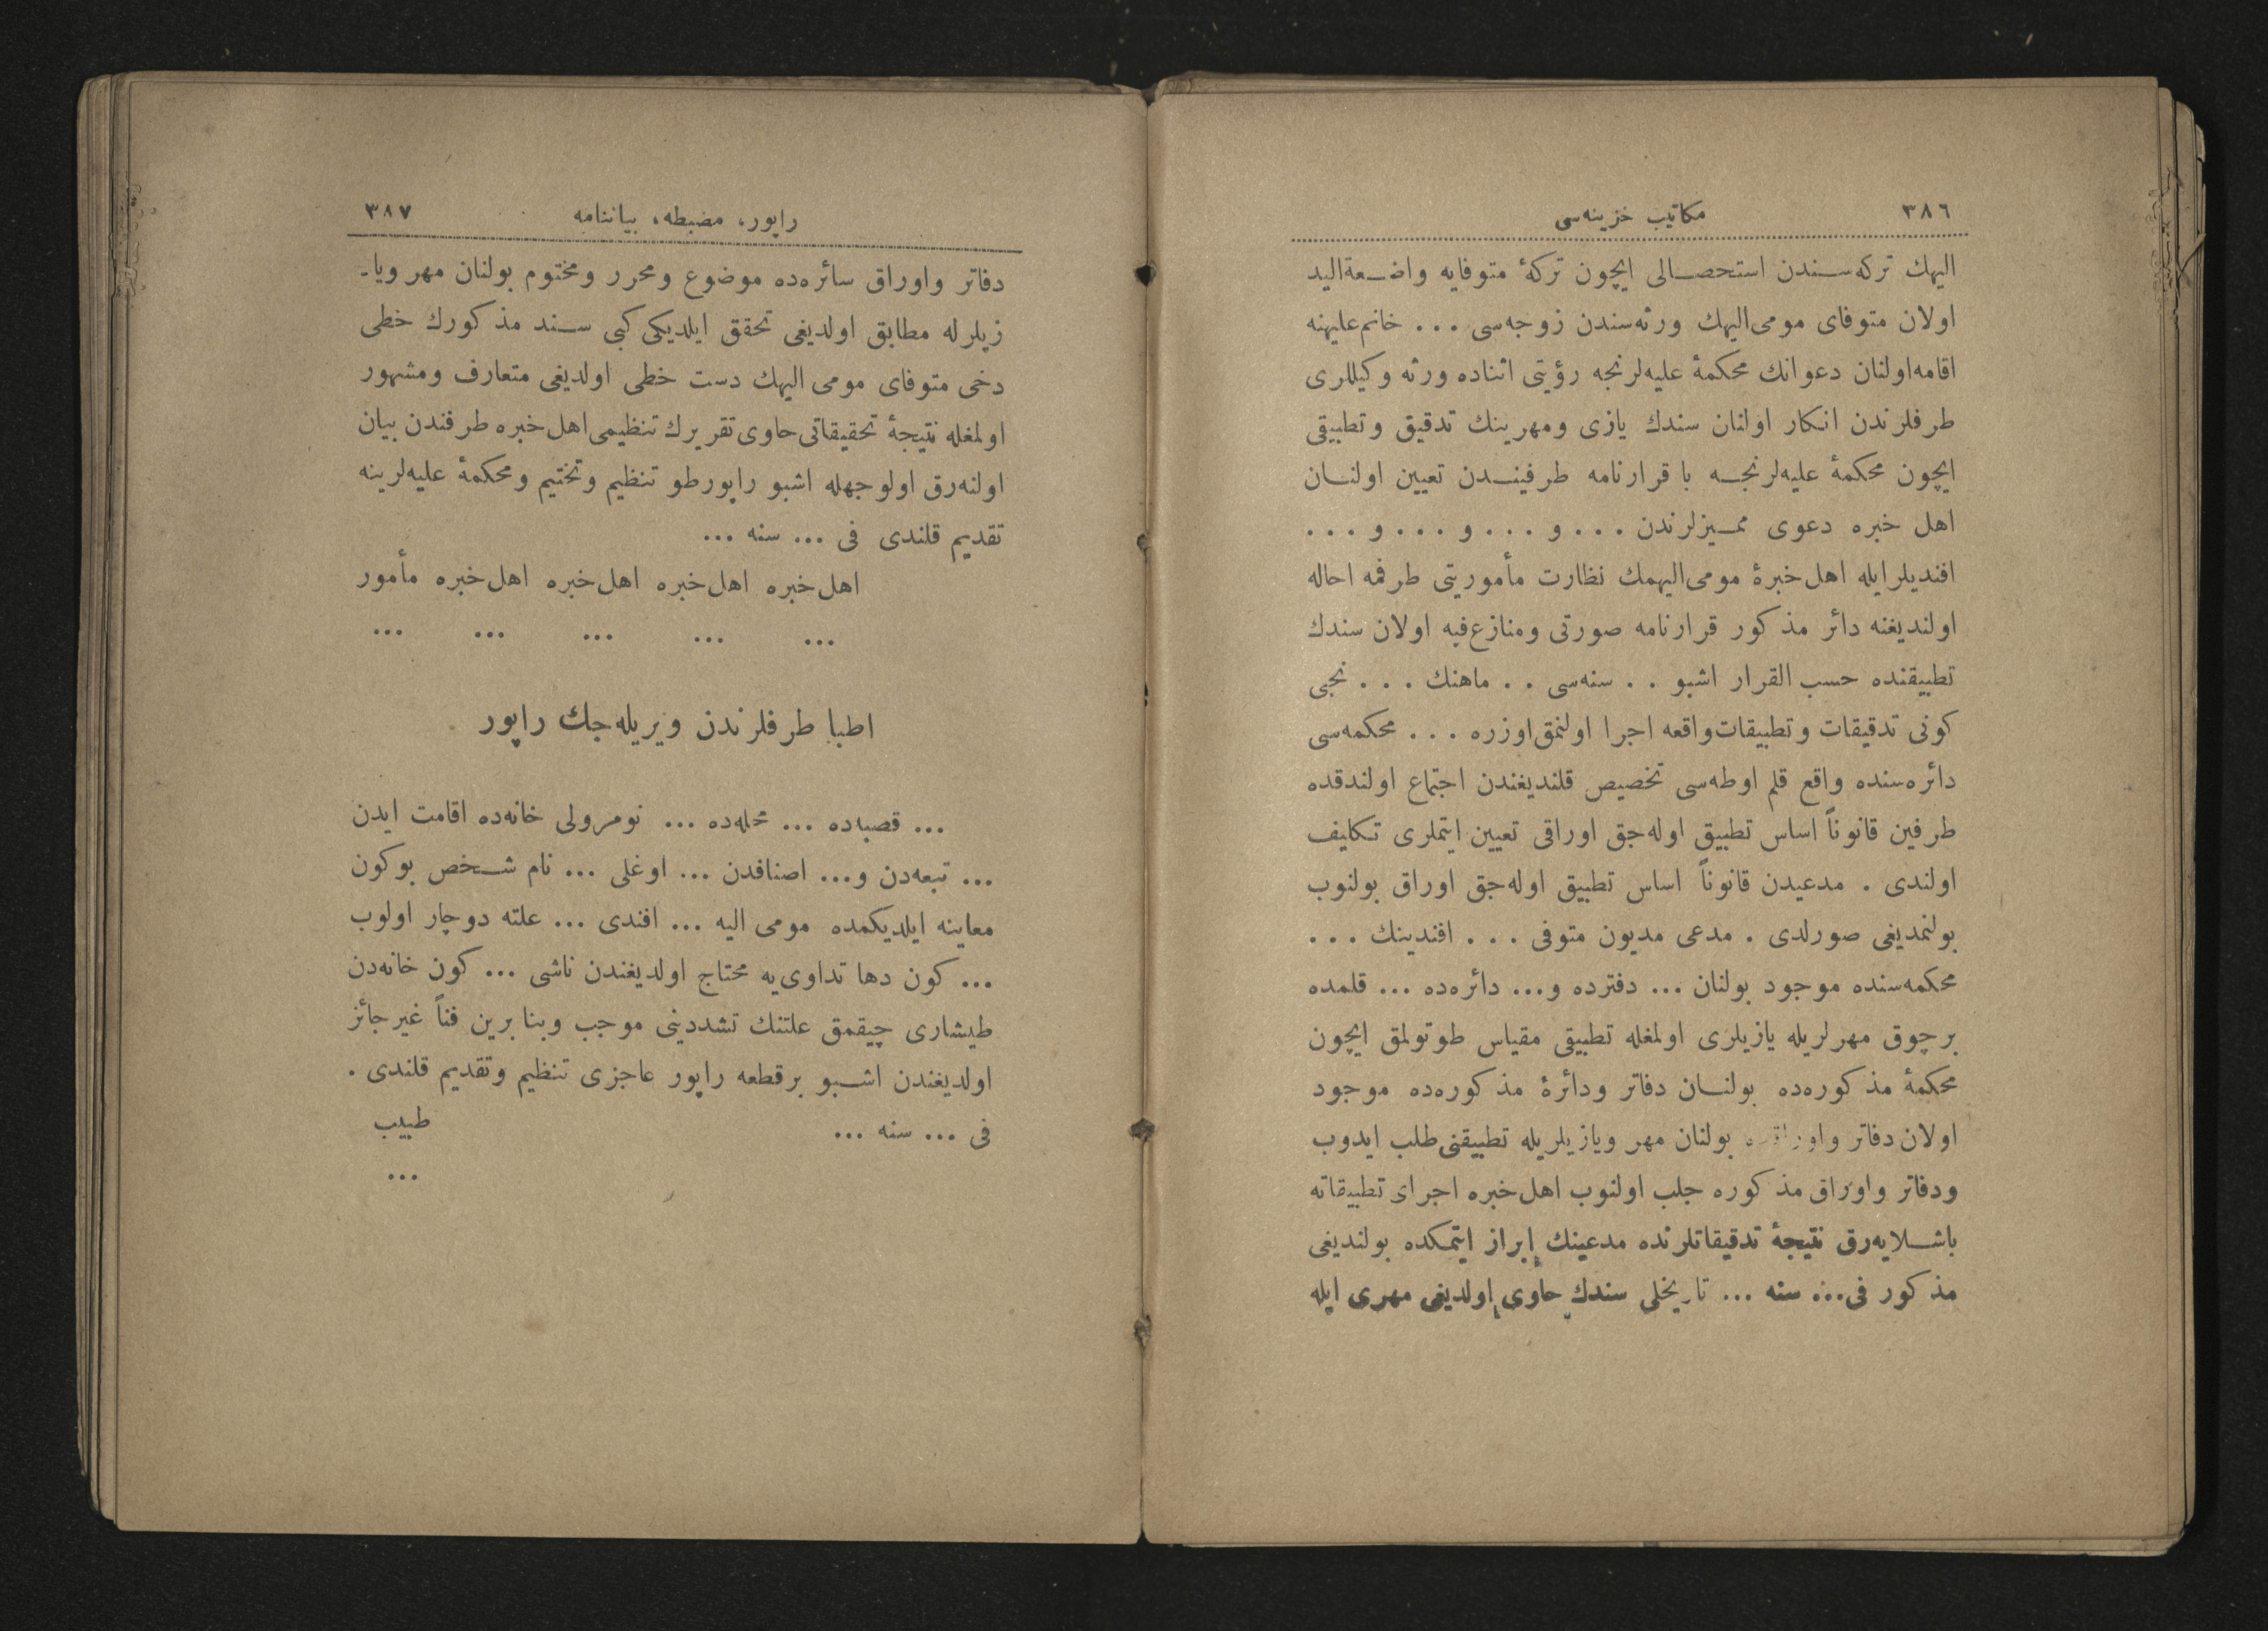 ٣٨٦ مكاتيب خزينه‌سى
اليهك تركه‌سندن استحصالى ايچون تركۀ متوفايه واضعة‌اليد
اولان متوفاى مومى‌اليهك ورثه‌سندن زوجه‌سى ... خانم‌عليهنه
اقامه‌اولنان دعوانك محكمۀ عليه‌لرنجه رؤيتى اثناده ورثه وكيللرى
طرفلرندن انكار اولنان سندك يازى ومهرينك تدقيق وتطبيقى
ايچون محكمۀ عليه‌لرنجه با قرارنامه طرفيندن تعيين اولنان
اهل خبره دعوى مميزلرندن ... و ... و ... و ...
افنديلرايله اهل‌خبرۀ مومى‌اليهمك نظارت مأموريتى طرفمه احاله
اولنديغنه دائر مذكور قرارنامه صورتى ومنازع‌فيه اولان سندك
تطبيقنده حسب القرار اشبو .. سنه‌سى .. ماهنك ... نجى
كونى تدقيقات وتطبيقات‌واقعه اجرا اولنمق‌اوزره ... محكمه‌سى
دائره‌سنده واقع قلم اوطه‌سى تخصيص قلنديغندن اجتماع اولندقده
طرفين قانوناً اساس تطبيق اوله‌جق اوراقى تعيين ايتملرى تكليف
اولندى . مدعيدن قانوناً اساس تطبيق اوله‌جق اوراق بولنوب
بولنمديغى صورلدى . مدعى مديون متوفى ... افندينك ...
محكمه‌سنده موجود بولنان ... دفترده و... دائره‌ده ... قلمده
برچوق مهرلريله يازيلرى اولمغله تطبيقى مقياس طوتولمق ايچون
محكمۀ مذكوره‌ده بولنان دفاتر ودائرۀ مذكوره‌ده موجود
اولان دفاتر واوراقده بولنان مهر ويازيلريله تطبيقنى‌طلب ايدوب
ودفاتر واوراق مذكوره جلب اولنوب اهل‌خبره اجراى تطبيقاته
باشلايه‌رق نتيجۀ تدقيقاتلرنده مدعينك ابراز ايتمكده بولنديغى
مذكور فى... سنه ... تاريخلى سندك حاوى اولديغى مهرى ايله
راپور، مضبطه، بياننامه ٣٨٧
دفاتر واوراق سائره‌ده موضوع ومحرر ومختوم بولنان مهر ويا-
زيلرله مطابق اولديغى تحقق ايلديكى كبى سند مذكورك خطى
دخى متوفاى مومى اليهك دست خطى اولديغى متعارف ومشهور
اولمغله نتيجۀ تحقيقاتى‌حاوى تقريرك تنظيمى‌اهل‌خبره طرفندن بيان
اولنه‌رق اولوجهله اشبو راپورطو تنظيم وتختيم ومحكمۀ عليه‌لرينه
تقديم قلندى فى ... سنه ...
اهل‌خبره اهل‌خبره اهل‌خبره اهل‌خبره مأمور
... ... ... ... ...
اطبا طرفلرندن ويريله‌جك راپور
... قصبه‌ده ... محله‌ده ... نومرولى خانه‌ده اقامت ايدن
... تبعه‌دن و... اصنافدن ... اوغلى ... نام شخص بوكون
معاينه ايلديكمده مومى اليه ... افندى ... علته دوچار اولوب
... كون دها تداوى‌يه محتاج اولديغندن ناشى ... كون خانه‌دن
طيشارى چيقمق علتنك تشددينى موجب وبنا برين فناً غيرجائز
اولديغندن اشبو برقطعه راپور عاجزى تنظيم وتقديم قلندى .
فى ... سنه ... طبيب
...